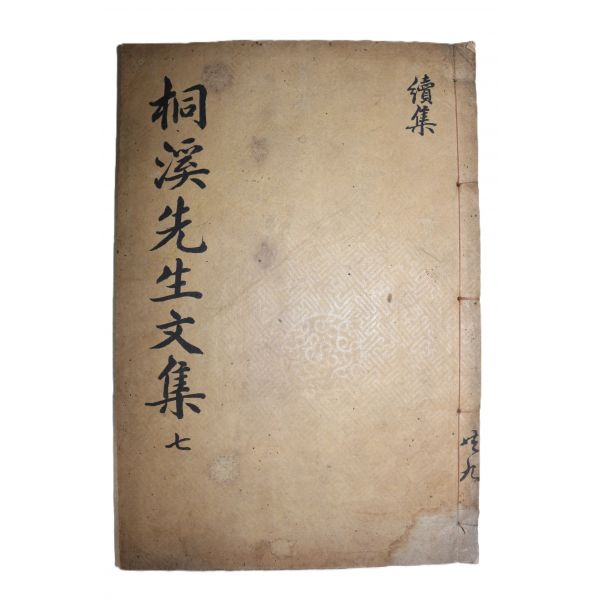 續集
桐溪先生文集 七
共九